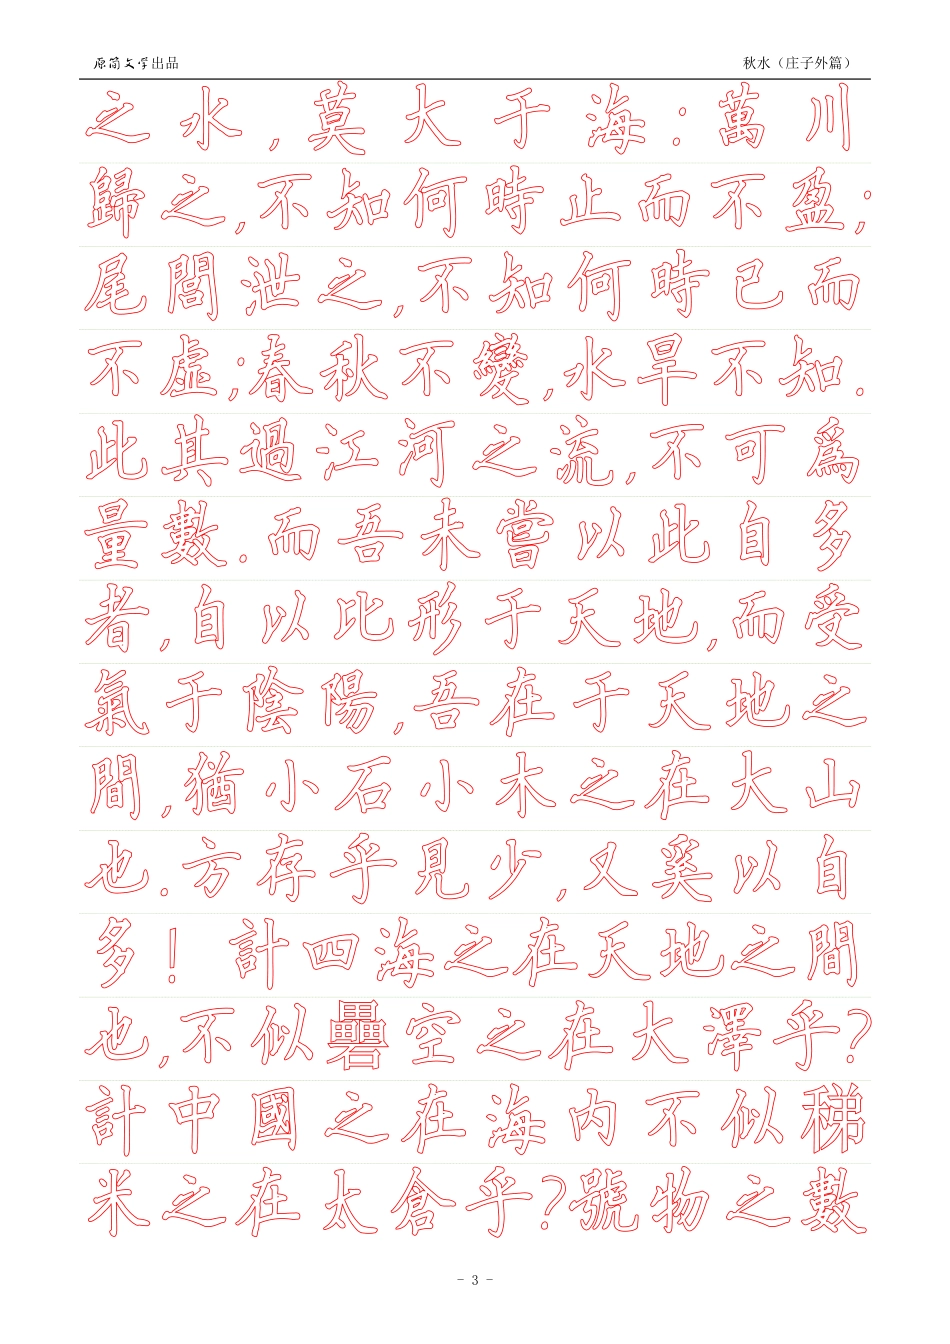 原简文学出品 秋水（庄子外篇）
之水,莫大于海:萬川
歸之,不知何時止而不盈;
尾閭泄之,不知何時已而
不虛;春秋不變,水旱不知.
此其過江河之流,不可爲
量數.而吾未嘗以此自多
者,自以比形于天地,而受
氣于陰陽,吾在于天地之
間,猶小石小木之在大山
也.方存乎見少,又奚以自
多! 計四海之在天地之間
也,不似礨空之在大澤乎?
計中國之在海内不似稊
米之在太倉乎?號物之數
- 3 -